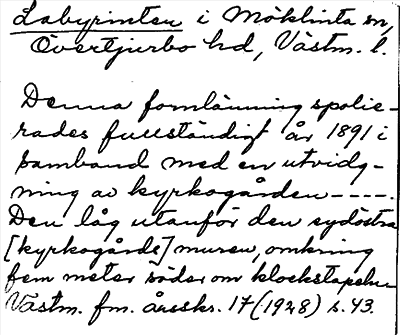 Labyrinten i Möklinta sn,
Övertjurbo hd, Västm. l.
Denna fornlämning spolie-
rades fullständigt år 1891 i
samband med en utvidg-
ning av kyrkogården ----.
Den låg utanför den sydöstra
[kyrkogårds] muren, omkring
fem meter söder om klockstapeln
Västm. fm. årsskr. 17 (1928) s. 43.